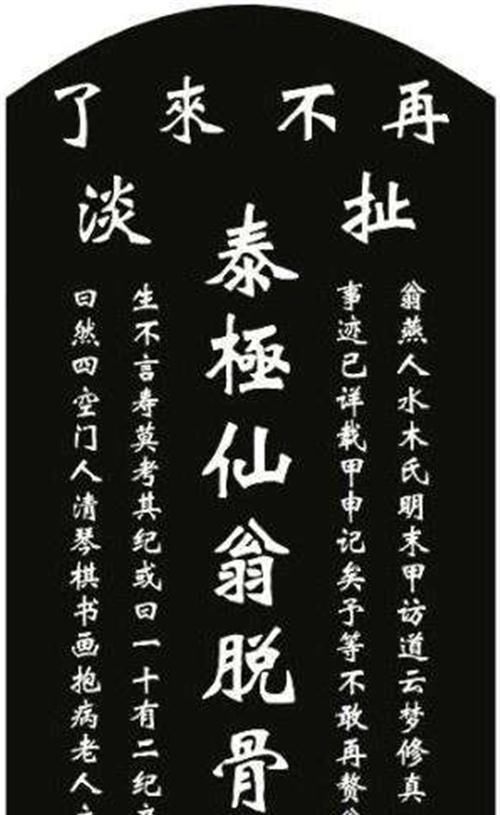 再不來了
扯淡
翁燕人水木氏明末甲访道云梦修真
事迹已详载甲申记矣予等不敢再赘
泰極仙翁脱骨
生不言寿莫考其纪或曰一十有二纪
曰然四空门人清琴棋书画抱病老人